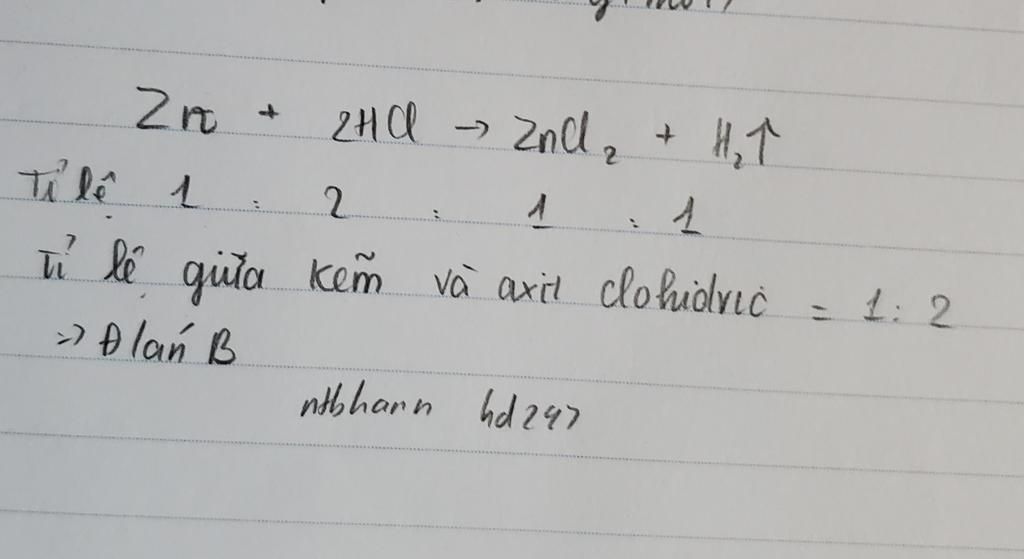 Zn + 2HCl → ZnCl₂ + H₂↑
Tỉ lệ 1 : 2 : 1 : 1
Tỉ lệ giữa kẽm và axit clohidric = 1 : 2
=> Đ/án B
ntbhann hd247